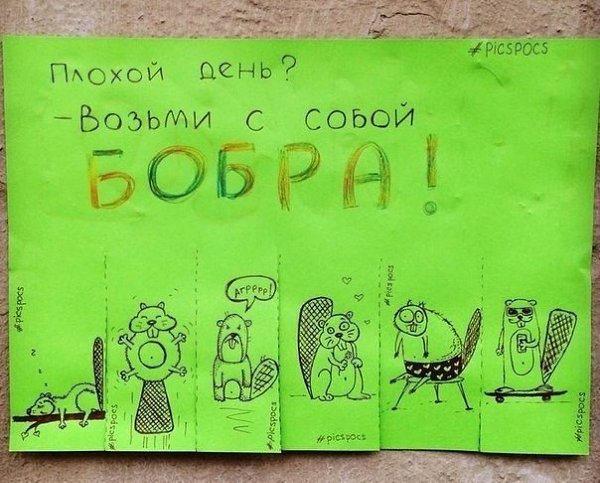 #PICSPOCS
Плохой день?
-Возьми с собой
БОБРА!
#picspocs
#picspocs
АГРРРР!
#picspocs
#picspocs
#picspocs
#picspocs